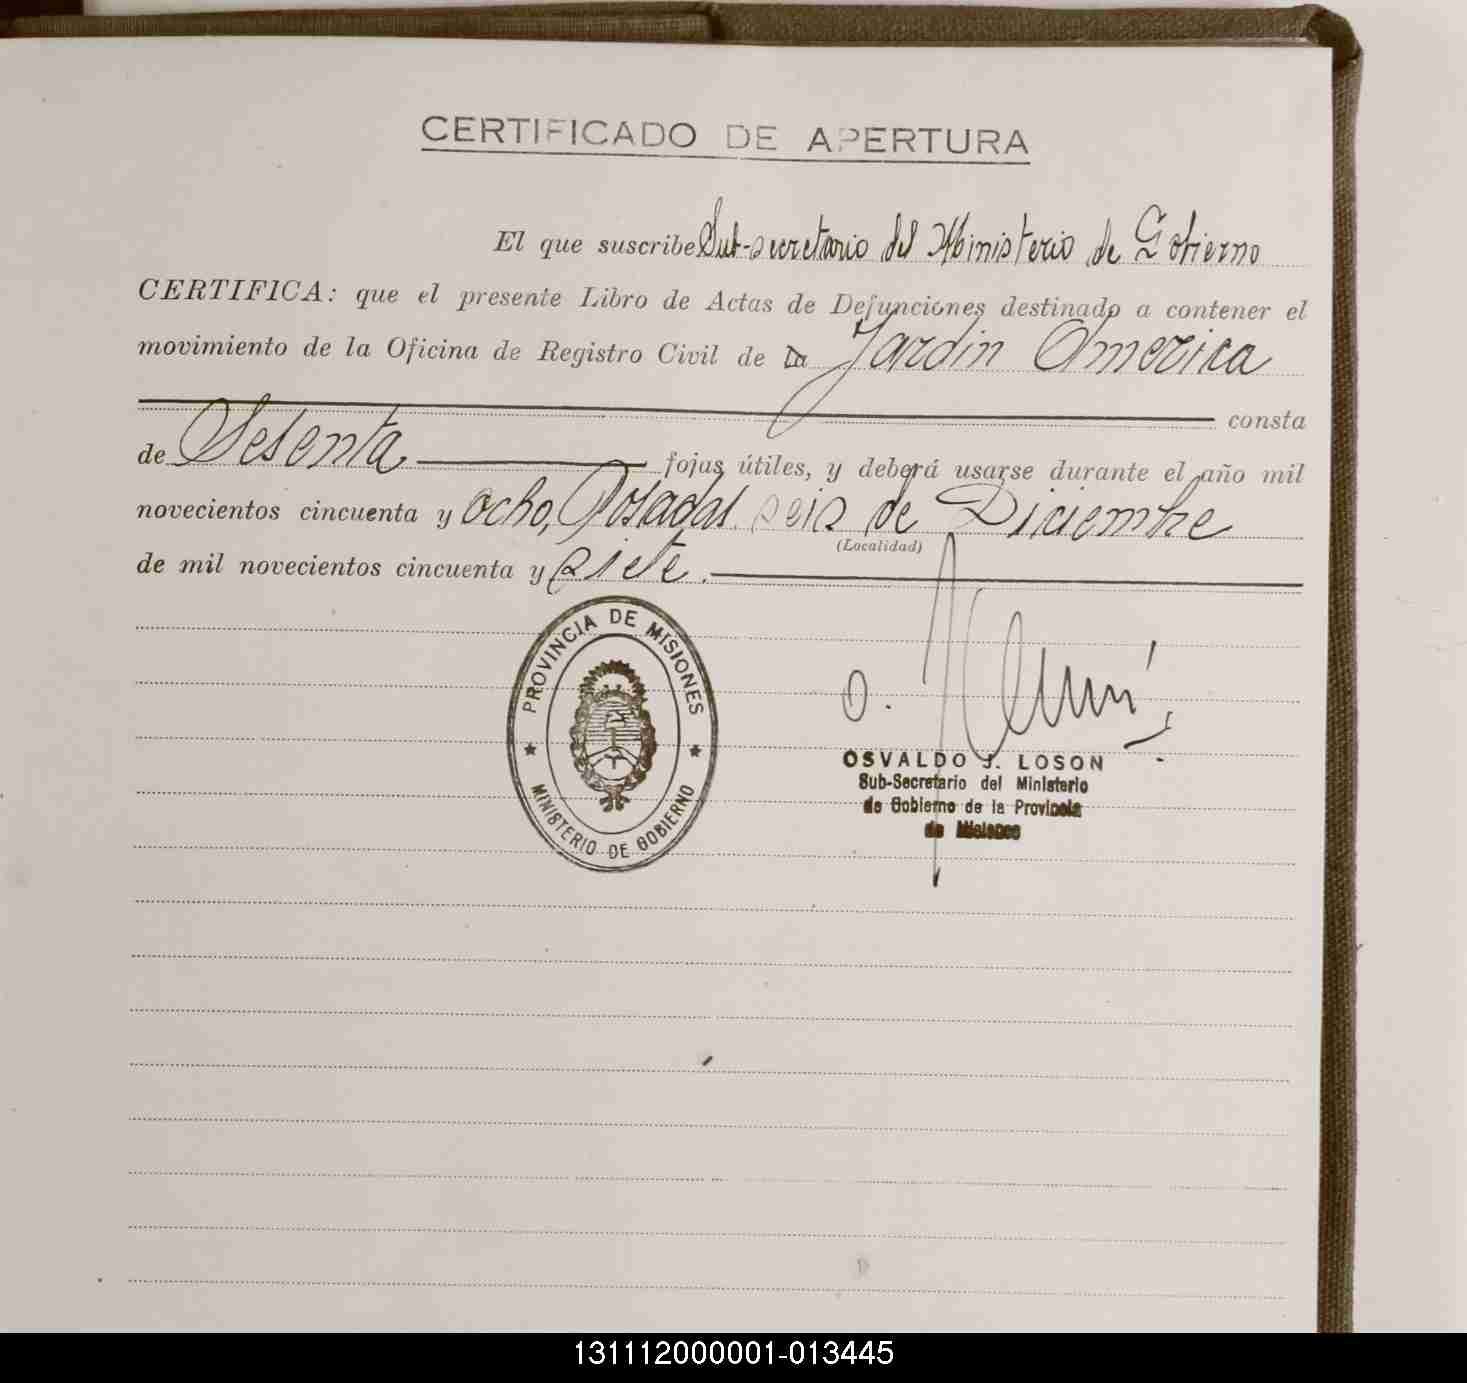 CERTIFICADO DE APERTURA
El que suscribe Sub-secretario del Ministerio de Gobierno
CERTIFICA: que el presente Libro de Actas de Defunciones destinado a contener el
movimiento de la Oficina de Registro Civil de la Jardin America
consta
de Sesenta fojas útiles, y deberá usarse durante el año mil
novecientos cincuenta y ocho, Posadas seis de Diciembre
(Localidad)
de mil novecientos cincuenta y siete.
PROVINCIA DE MISIONES
MINISTERIO DE GOBIERNO
OSVALDO J. LOSON
Sub-Secretario del Ministerio
de Gobierno de la Provincia
de Misiones
131112000001-013445